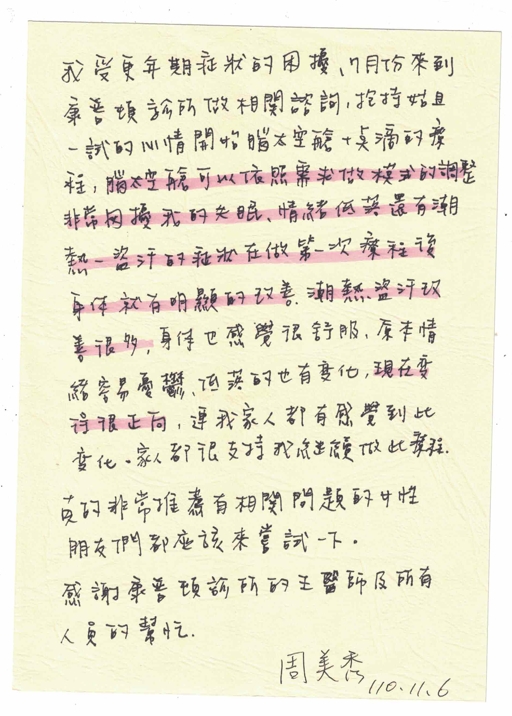 我受更年期症狀的困擾、7月份來到
康普頓診所做相關諮詢,抱持姑且
一試的心情開始腦太空艙+点滴的療
程,腦太空艙可以依照需求做模式的調整
非常困擾我的失眠、情緒低落還有潮
熱、盜汗的症狀在做第一次療程後
身体就有明顯的改善、潮熱、盜汗改
善很多,身体也感覺很舒服、原本情
緒容易憂鬱、低落的也有变化,現在变
得很正向,連我家人都有感覺到此
变化、家人都很支持我繼續做此療程.
真的非常推薦有相關問題的女性
朋友們都應該來嘗試一下。
感謝康普頓診所的王醫師及所有
人員的幫忙.
周美秀
110.11.6